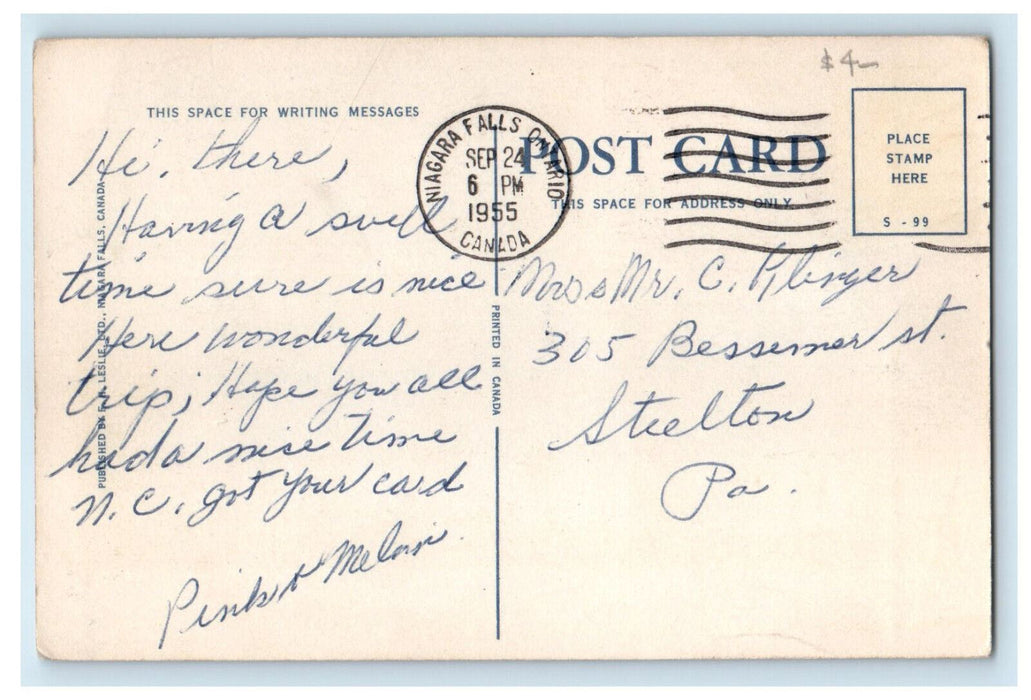 $4-
THIS SPACE FOR WRITING MESSAGES
Hi, there,
Having a swell
time sure is nice
Here wonderful
trip; Hope you all
had a nice time
N.C. got your card
Pink &
PUBLISHED BY F. H. LESLIE, LTD., NIAGARA FALLS, CANADA
NIAGARA FALLS ONTARIO
SEP 24
6 PM
1955
CANADA
PRINTED IN CANADA
POST CARD
THIS SPACE FOR ADDRESS ONLY
PLACE
STAMP
HERE
S - 99
Mrs & Mr. C. Klinger
305 Bessemer st.
Steelton
Pa.